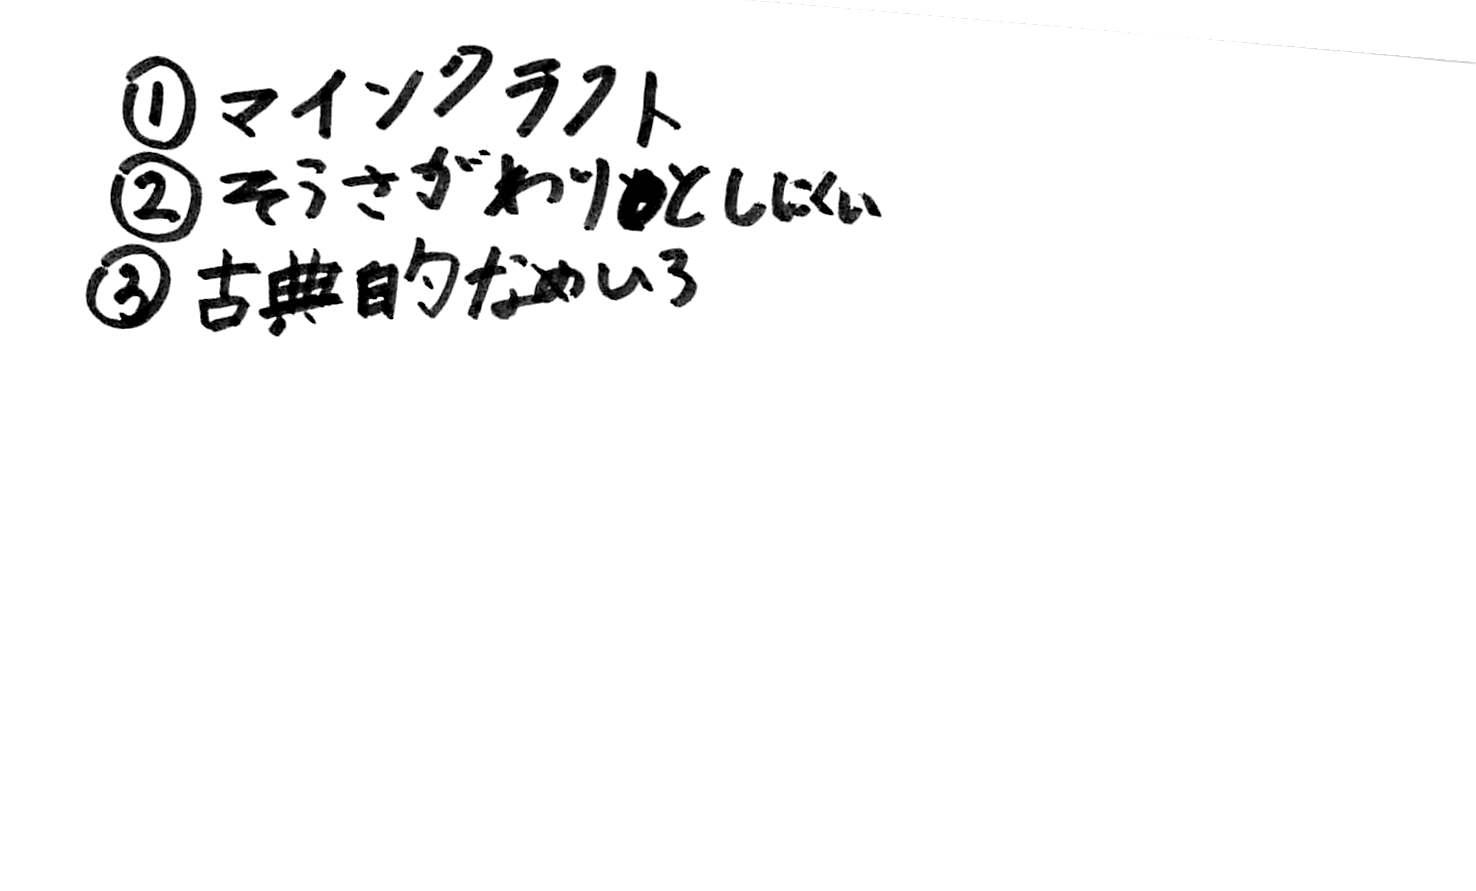 ① マインクラフト
② そうさがわりとしにくい
③ 古典的なめいろ